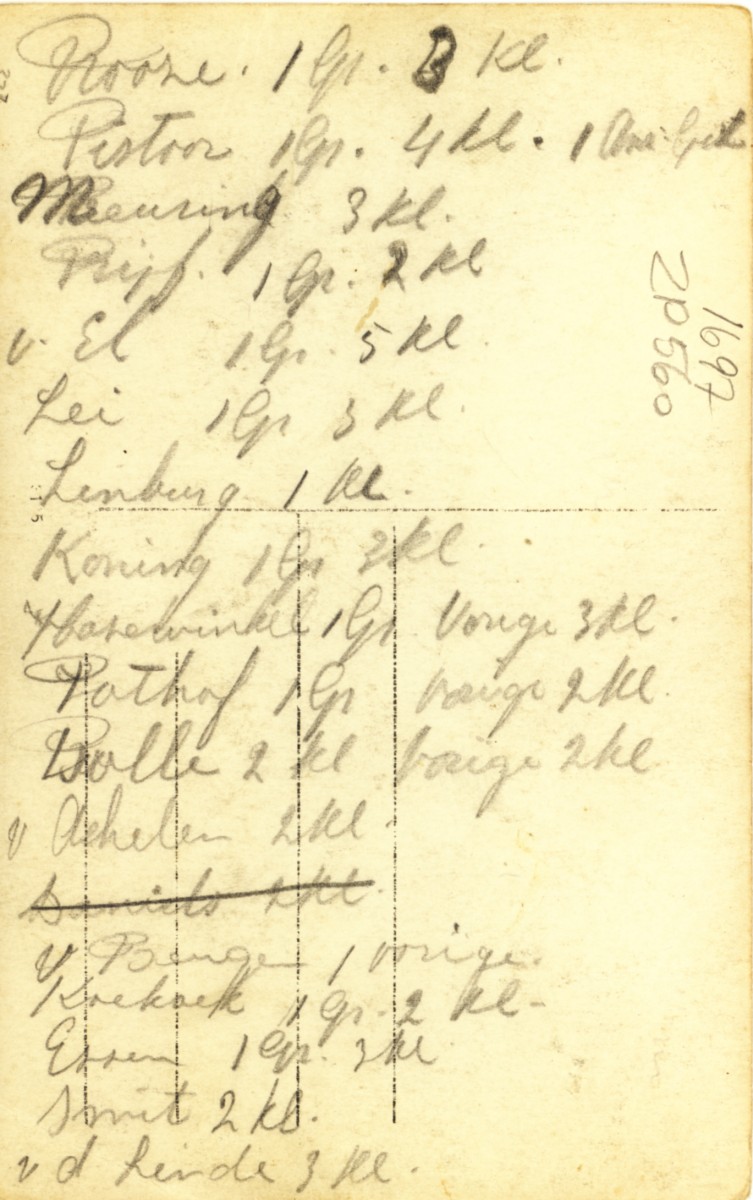 Rooze. 1 Gr. 3 Kl.
Pistoor 1 Gr. 4 Kl. 1
Meuring 3 Kl.
1 Gr. 2 Kl
v. El 1 Gr. 5 Kl.
Lei 1 Gr 3 Kl.
Linburg 1 Kl.
Koning 1 Gr 3 Kl.
1 Gr Vorige 3 Kl.
Pothof 1 Gr Vorige 2 Kl.
Bolle 2 Kl Vorige 2 Kl
v Achelen 2 Kl.
Daniels 2 Kl.
v Bengen 1 vorige.
Koekoek 1 Gr. 2 Kl.
1 Gr. 3 Kl
Smit 2 Kl.
v d Linde 3 Kl.
1697
2P560